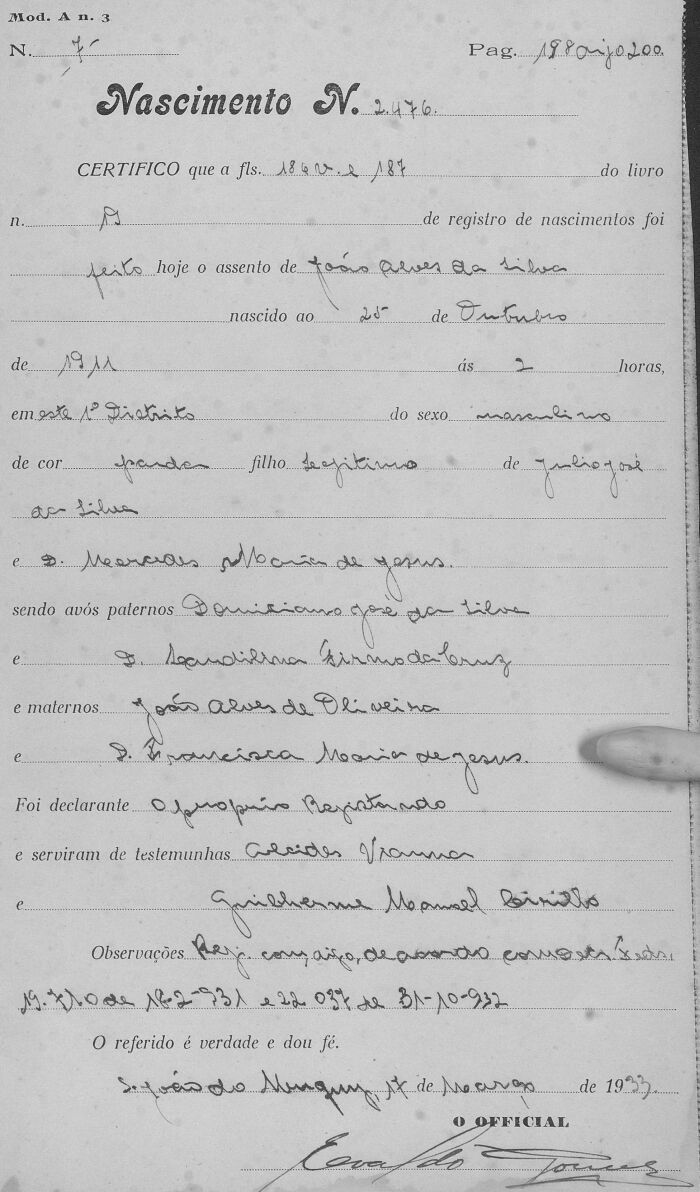 Mod. A n. 3
N. 7 Pag. 198
Nascimento N. 2.476.
CERTIFICO que a fls. 186 v. e 187 do livro
n. de registro de nascimentos foi
feito hoje o assento de João Alves da Silva
nascido ao 25 de Outubro
de 1911 ás 2 horas,
em este 1º Districto do sexo masculino
de cor parda filho legitimo de Julio José
da Silva
e D. Mercedes Maria de Jesus.
sendo avós paternos Domiciano José da Silva
e D. Landilina Firmo da Cruz
e maternos João Alves de Oliveira
e D. Francisca Maria de Jesus.
Foi declarante O proprio Registrando
e serviram de testemunhas Alcides Vianna
e Guilherme Manoel Cirillo
Observações Reg. de acordo com
19.710 de 18-2-931 e 22 037 de 31-10-932
O referido é verdade e dou fé.
S. João do 17 de Março de 1933.
O OFFICIAL
Evaldo Gomes